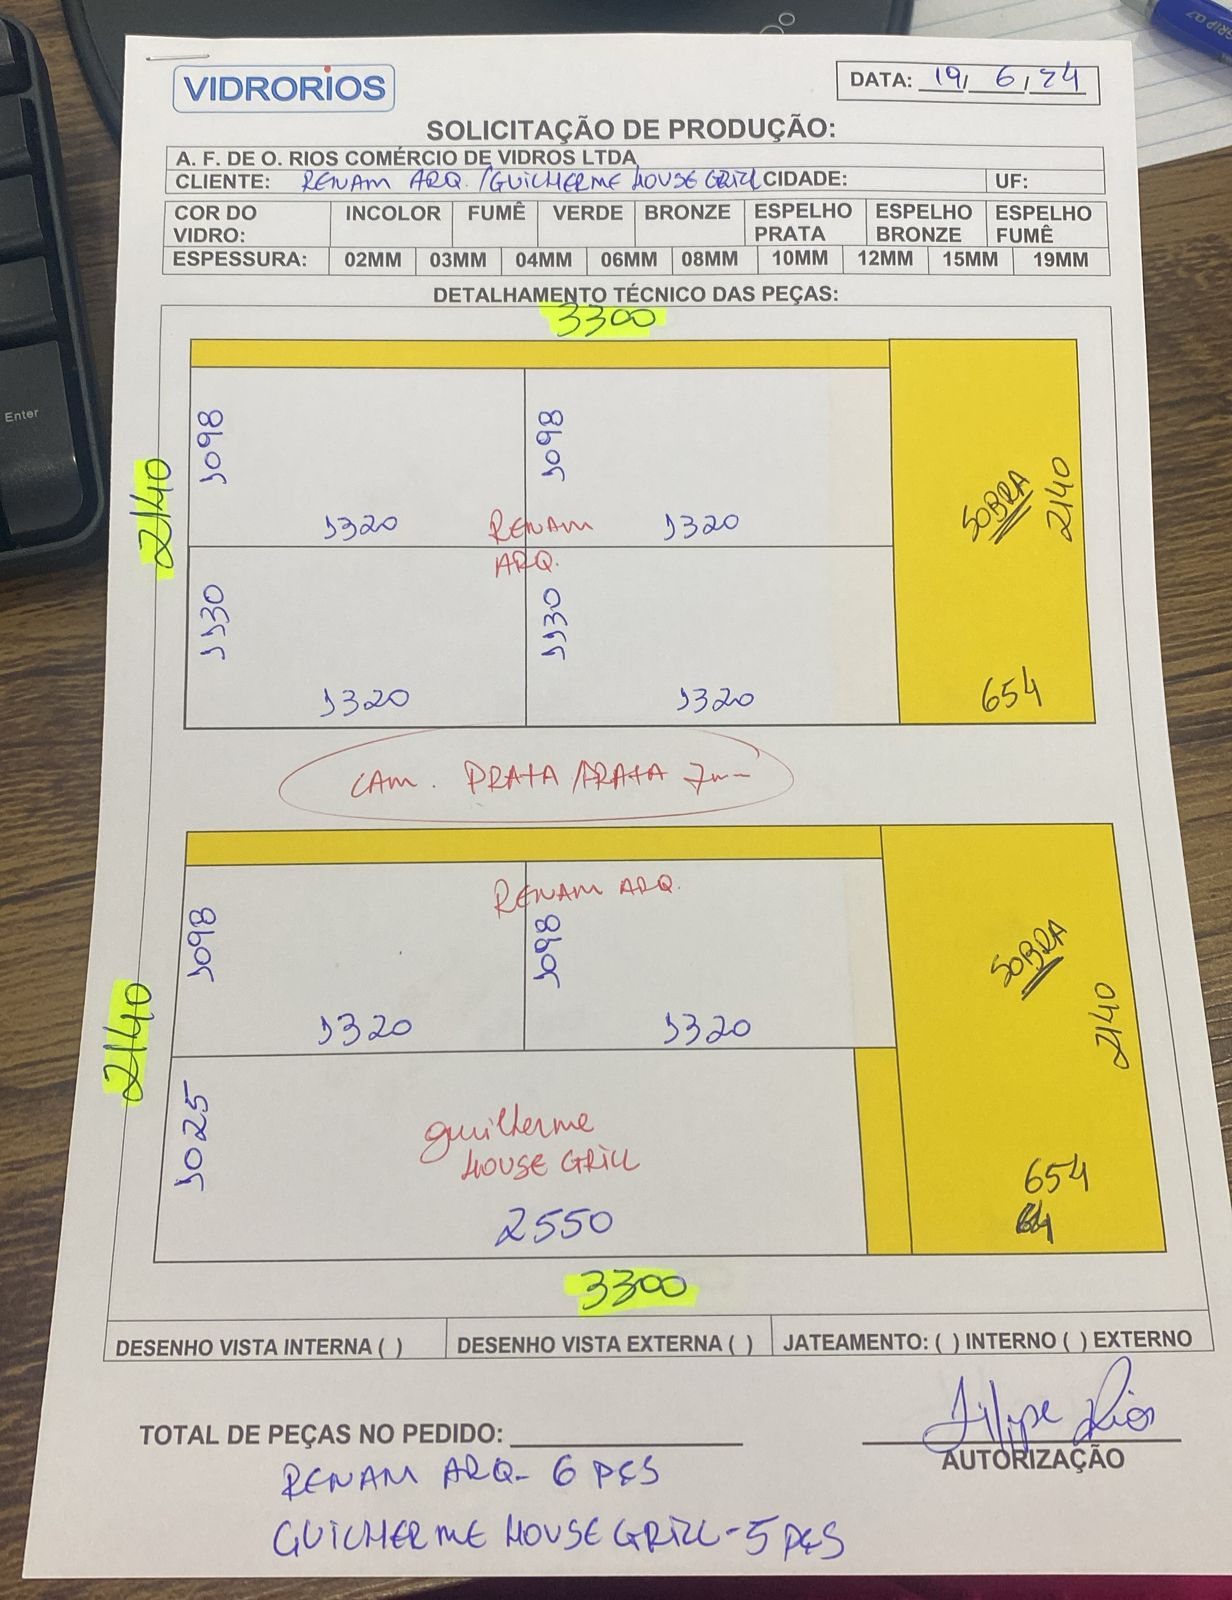 Enter
GRIP 0.7
VIDRORIOS
DATA: 19/ 6 / 24
SOLICITAÇÃO DE PRODUÇÃO:
A. F. DE O. RIOS COMÉRCIO DE VIDROS LTDA
CLIENTE: RENAM ARQ. /GUILHERME HOUSE GRILL CIDADE: UF:
COR DO VIDRO: INCOLOR FUMÊ VERDE BRONZE ESPELHO PRATA ESPELHO BRONZE ESPELHO FUMÊ
ESPESSURA: 02MM 03MM 04MM 06MM 08MM 10MM 12MM 15MM 19MM
DETALHAMENTO TÉCNICO DAS PEÇAS:
3300
2140
1098
1098
1320
RENAM
ARQ.
1320
SOBRA
2140
1130
1130
1320
1320
654
LAM. PRATA/PRATA 7mm
2140
RENAM ARQ.
1098
1098
1320
1320
SOBRA
2140
1025
guilherme
HOUSE GRILL
2550
654
3300
DESENHO VISTA INTERNA ( ) DESENHO VISTA EXTERNA ( ) JATEAMENTO: ( ) INTERNO ( ) EXTERNO
TOTAL DE PEÇAS NO PEDIDO:
Filipe Rios
AUTORIZAÇÃO
RENAM ARQ- 6 PÇS
GUILHERME HOUSE GRILL - 5 PÇS